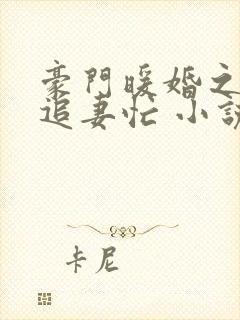 豪門暖婚之
追妻忙 小說
卡尼